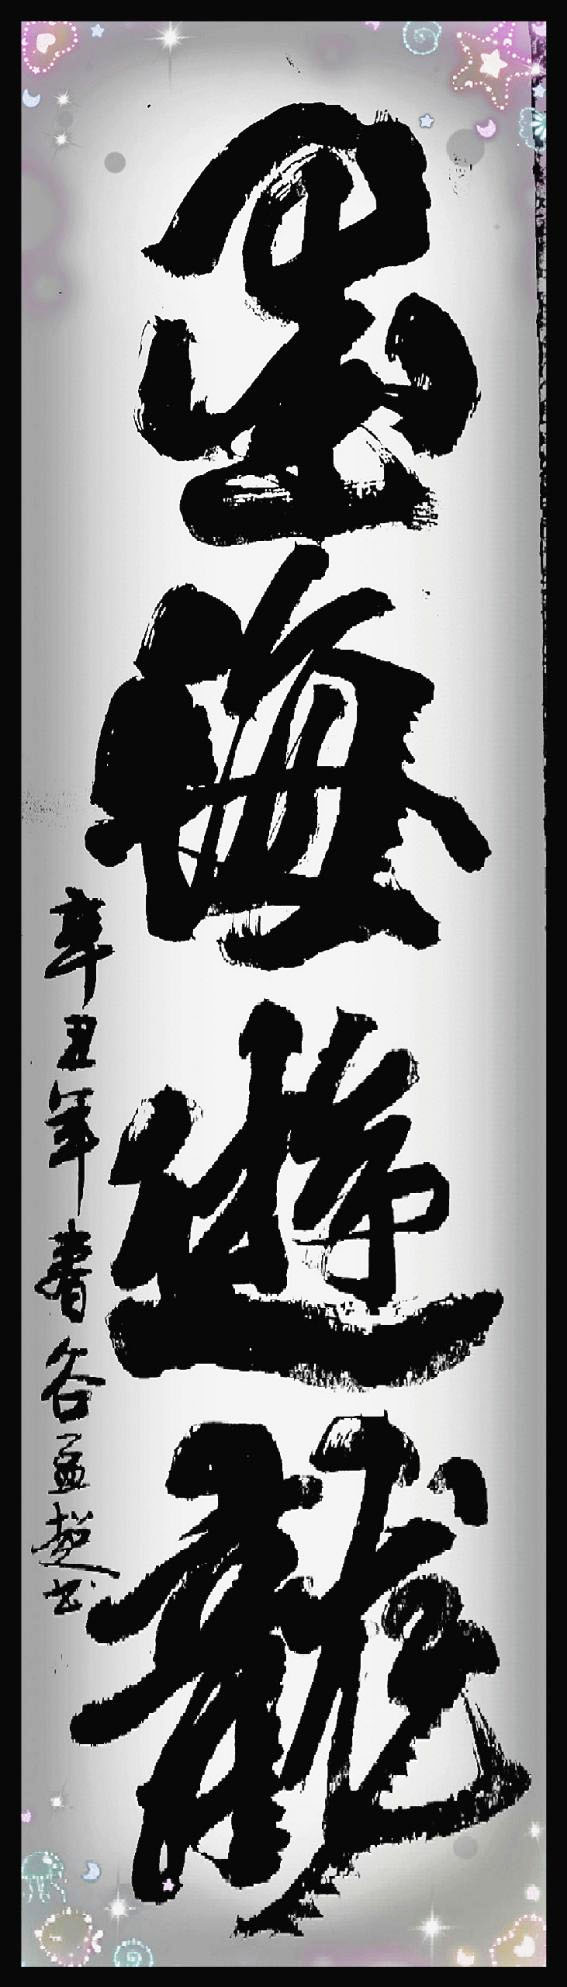 墨海遊龍
辛丑年春谷孟超书